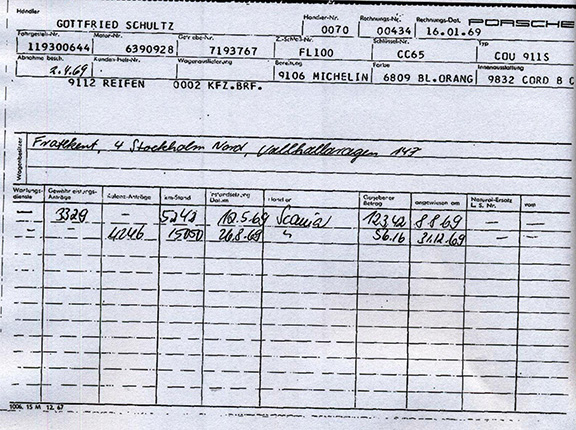 Händler
GOTTFRIED SCHULTZ
Händler-Nr. 0070
Rechnungs-Nr. 00434
Rechnungs-Dat. 16.01.69
PORSCHE
Fahrgestell-Nr. Motor-Nr. Getriebe-Nr. Z.-Schl.-Nr. Schlüssel-Nr. Typ
119300644 6390928 7193767 FL100 CC65 COU 911S
Abnahme besch. Kunden-Heft-Nr. Wagenauslieferung Bereifung Farbe Innenausstattung
2.4.69 9106 MICHELIN 6809 BL.ORANG 9832 CORD 8 C
9112 REIFEN 0002 KFZ.BRF.
Wagenbesitzer
4 Stockholm Nord, 147
Wartungs-dienste Gewährleistungs-Anträge Kulanz-Anträge km-Stand Instandsetzung Datum Händler Gegebener Betrag angewiesen am Natural-Ersatz L. S. Nr. vom
— 3329 — 5242 12.5.69 Scania 123,42 8.8.69 — —
— 4246 15050 26.8.69 " 56.16 31.12.69 — —
1006. 15 M 12. 67